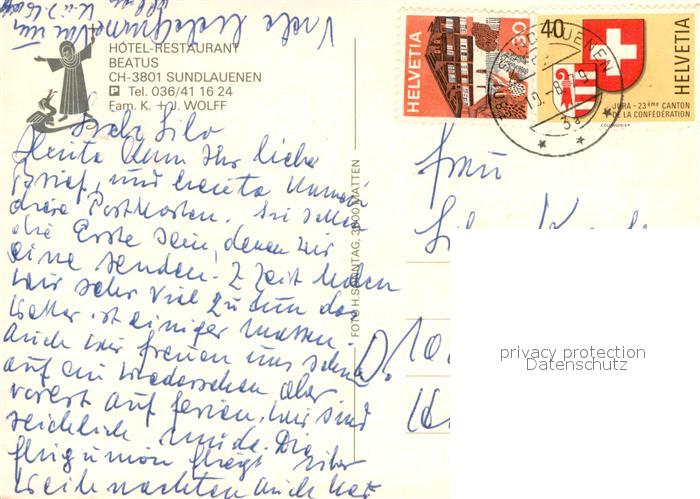 HOTEL-RESTAURANT
BEATUS
CH-3801 SUNDLAUENEN
P Tel. 036/41 16 24
Fam. K. + J. WOLFF
Heute kam Ihr lieber
Brief, und heute kamen
diese Postkarten. Sie sollen
die Erste sein, denen wir
eine senden. Z Zeit haben
wir sehr viel zu tun das
Wetter ist einiger massen.
Auch wir freuen uns schon
auf ein Wiedersehen aber
vorerst auf ferien, wir sind
reichlich müde. Die
fliegt über
Weihnachten auch
FOTO H. SONNTAG, 3800 MATTEN
HELVETIA
30
40
HELVETIA
JURA - 23ème CANTON
DE LA CONFÉDÉRATION
COURVOISIER
Frau
D.
privacy protection
Datenschutz